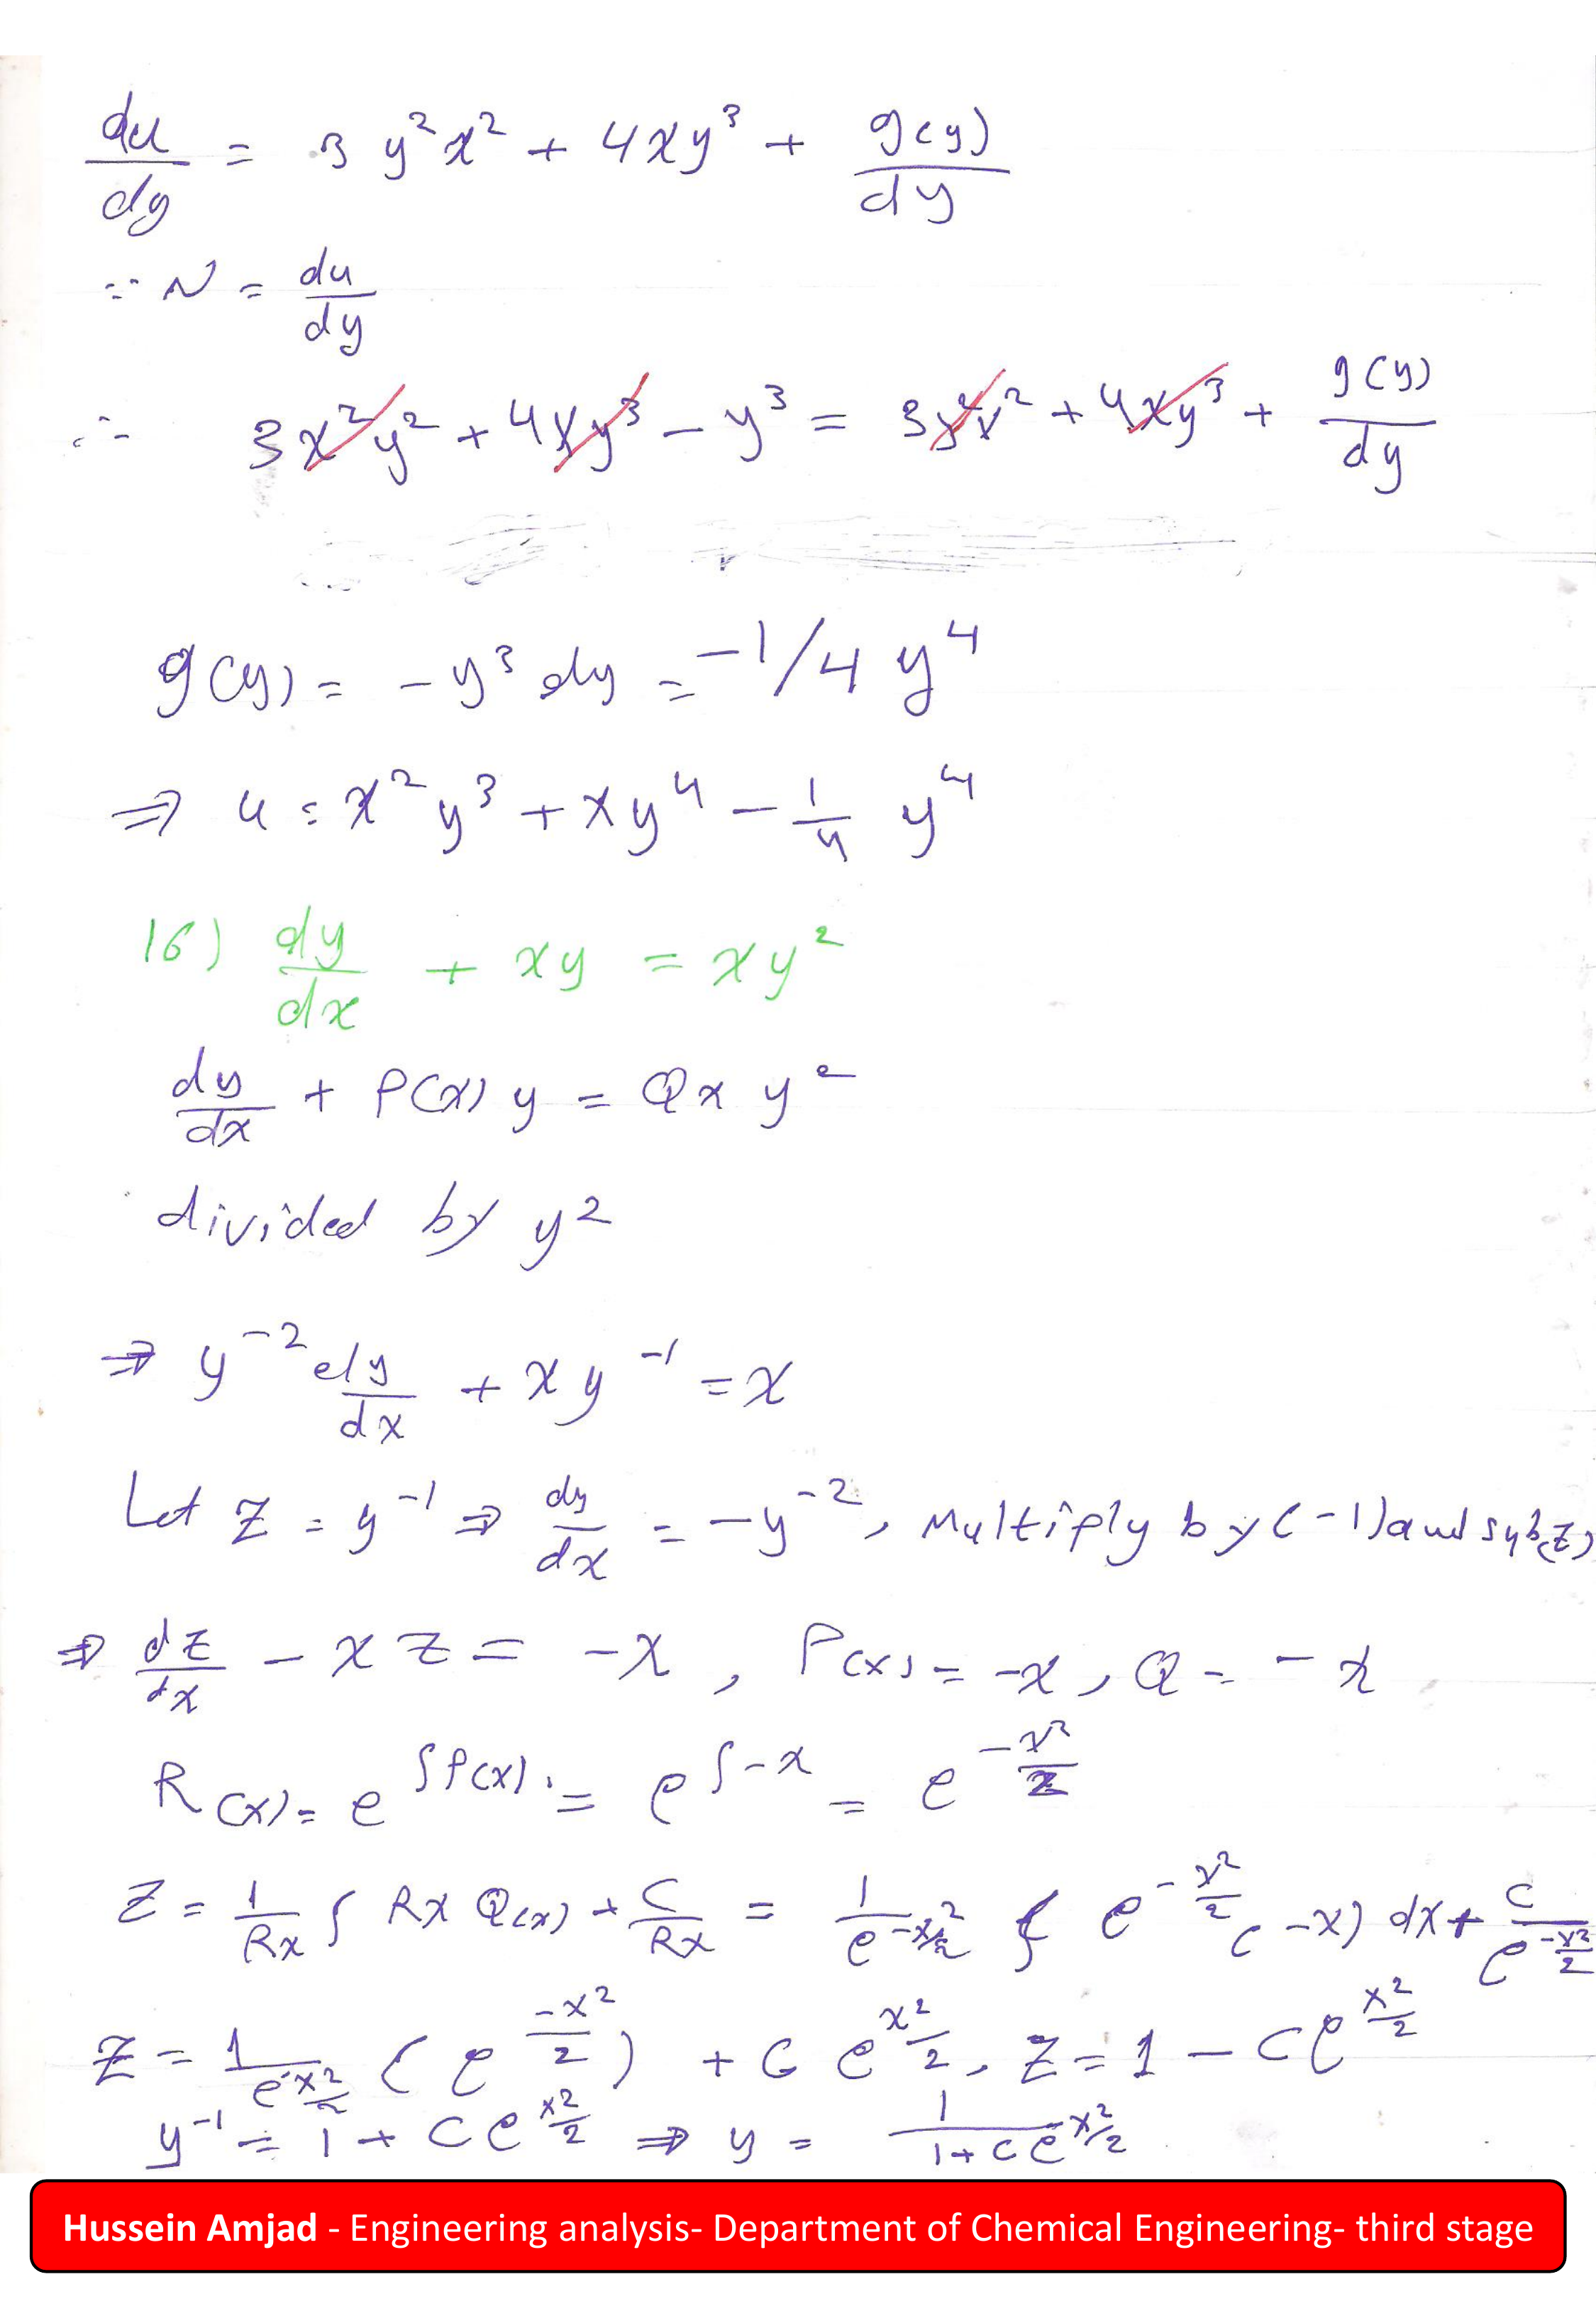 du/dy = 3 y²x² + 4xy³ + g(y)/dy
∵ N = du/dy
∴ 3x²y² + 4xy³ − y³ = 3y²x² + 4xy³ + g(y)/dy
g(y) = − y³ dy = −1/4 y⁴
⇒ u = x²y³ + xy⁴ − 1/4 y⁴
16) dy/dx + xy = xy²
dy/dx + P(x) y = Qx y²
divided by y²
⇒ y⁻² dy/dx + xy⁻¹ = x
Let Z = y⁻¹ ⇒ dy/dx = −y⁻², Multiply by (−1) and sub(z)
⇒ dz/dx − xz = −x, P(x) = −x, Q = −x
R(x) = e^∫P(x) = e^∫−x = e^(−x²/2)
Z = 1/Rx ∫ Rx Q(x) + C/Rx = 1/e^(−x²/2) ∫ e^(−x²/2) (−x) dx + C/e^(−x²/2)
Z = 1/e^(−x²/2) (e^(−x²/2)) + C e^(x²/2), Z = 1 − C e^(x²/2)
y⁻¹ = 1 + C e^(x²/2) ⇒ y = 1/(1 + C e^(x²/2))
Hussein Amjad - Engineering analysis- Department of Chemical Engineering- third stage